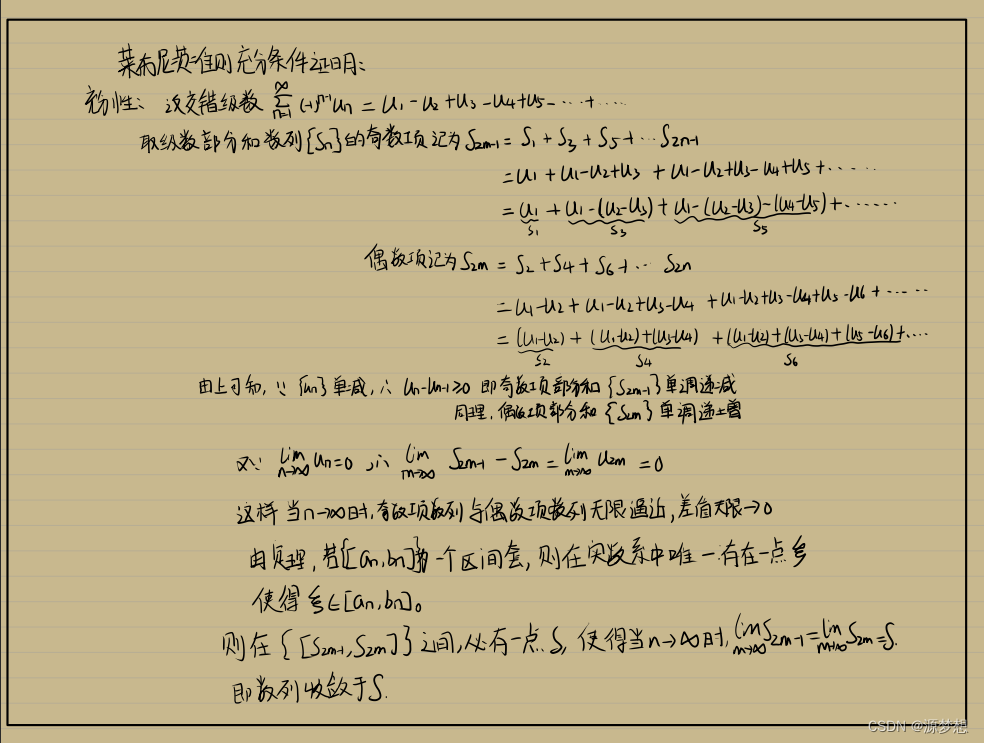 莱布尼茨准则充分条件证明：
充分性：设交错级数 ∑_{n=1}^{∞} (-1)^{n-1} u_n = u_1 - u_2 + u_3 - u_4 + u_5 - ⋯ + ⋯
取级数部分和数列{S_n}的奇数项记为 S_{2m-1} = S_1 + S_3 + S_5 + ⋯ S_{2n-1}
= u_1 + u_1 - u_2 + u_3 + u_1 - u_2 + u_3 - u_4 + u_5 + ⋯
= u_1 + u_1 - (u_2 - u_3) + u_1 - (u_2 - u_3) - (u_4 - u_5) + ⋯
S_1 S_3 S_5
偶数项记为 S_{2m} = S_2 + S_4 + S_6 + ⋯ S_{2n}
= u_1 - u_2 + u_1 - u_2 + u_3 - u_4 + u_1 - u_2 + u_3 - u_4 + u_5 - u_6 + ⋯
= (u_1 - u_2) + (u_1 - u_2) + (u_3 - u_4) + (u_1 - u_2) + (u_3 - u_4) + (u_5 - u_6) + ⋯
S_2 S_4 S_6
由上可知，∵ {u_n} 单减，∴ u_n - u_{n-1} ≥ 0 即奇数项部分和 {S_{2m-1}} 单调递减
同理，偶数项部分和 {S_{2m}} 单调递增
又∵ lim_{n→∞} u_n = 0，∴ lim_{m→∞} S_{2m-1} - S_{2m} = lim_{m→∞} u_{2m} = 0
这样当 n→∞ 时，奇数项数列与偶数项数列无限逼近，差值无限→0
由 理，若{[a_n, b_n]}为一个区间套，则在实数系中唯一有在一点 ξ
使得 ξ∈[a_n, b_n]。
则在 {[S_{2m-1}, S_{2m}]} 之间，必有一点 S，使得当 n→∞ 时，lim_{m→∞} S_{2m-1} = lim_{m→∞} S_{2m} = S.
即数列收敛于 S.
CSDN @源梦想